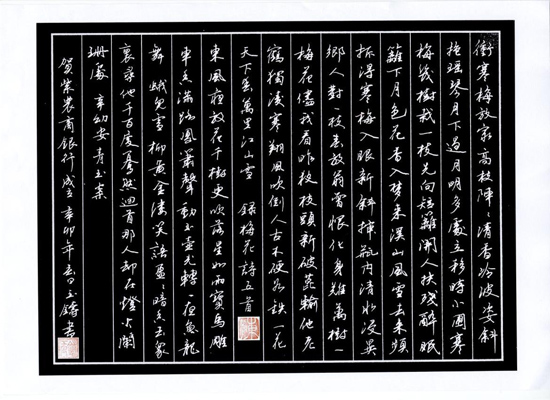 衝寒梅放最高枝陣〻清香冷波姿斜
抱瑤琴月下過月明多處立移時小園寒
梅幾樹栽一枝先向短籬開人扶殘醉眠
籬下月色花香入夢來溪山風雪去來頻
折得寒梅入眼新斜插瓶內清水浸異
鄉人對一枝春放翁當恨化身難萬樹一
梅花儘我看昨夜枝頭新破蕊輸他老
鶴獨淩寒翔風吹倒人古木硬如鐵一花
天下春萬里江山雪 錄梅花詩五首
東風夜放花千樹更吹落星如雨寶馬雕
車香滿路鳳簫聲動玉壺光轉一夜魚龍
舞 蛾兒雪柳黃金縷笑語盈〻暗香去眾
裏尋他千百度驀然迴首那人卻在燈火闌
珊處 辛幼安青玉案
賀紫農商銀行成立 辛卯年 玉鑄書